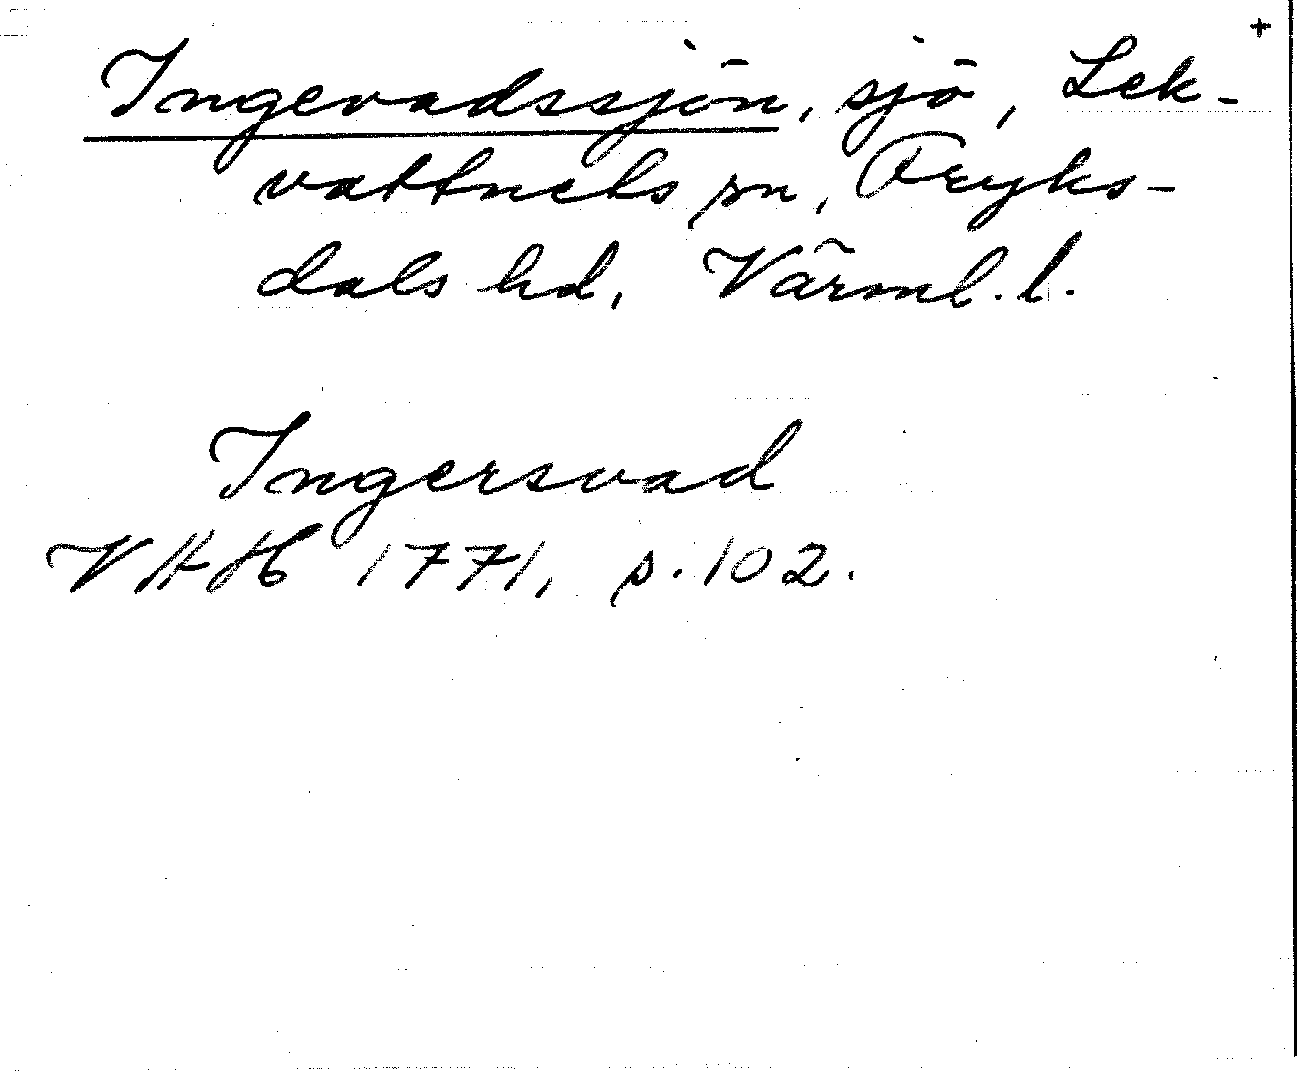 +
Ingevadssjön, sjö, Lek-
vattnets sn, Fryks-
dals hd, Värml. l.
Ingersvad
VAH 1771, s. 102.